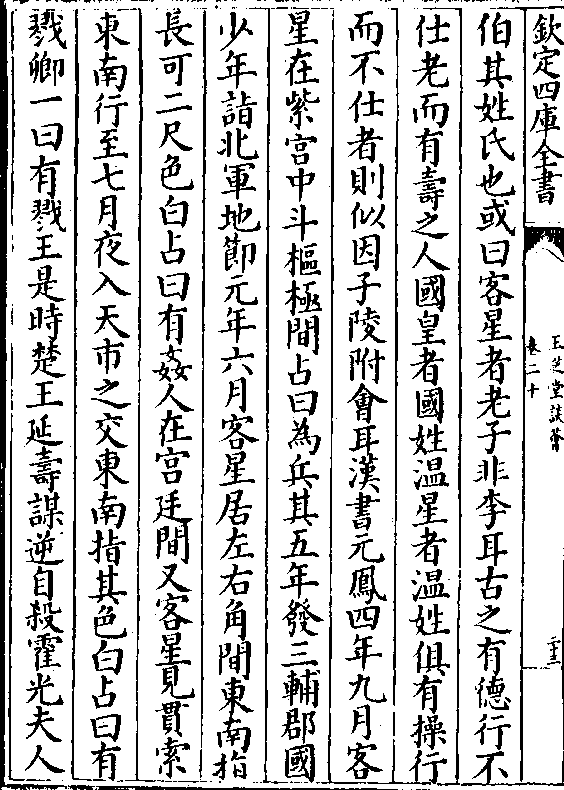 欽定四庫全書
玉芝堂談薈
卷二十
二十三
伯其姓氏也或曰客星者老子非李耳古之有德行不
仕老而有壽之人國皇者國姓溫星者溫姓俱有操行
而不仕者則似因子陵附會耳漢書元鳳四年九月客
星在紫宮中斗樞極間占曰為兵其五年發三輔郡國
少年詣北軍地節元年六月客星居左右角間東南指
長可二尺色白占曰有姦人在宮廷間又客星見貫索
東南行至七月夜入天市之交東南指其色白占曰有
戮卿一曰有戮王是時楚王延壽謀逆自殺霍光夫人